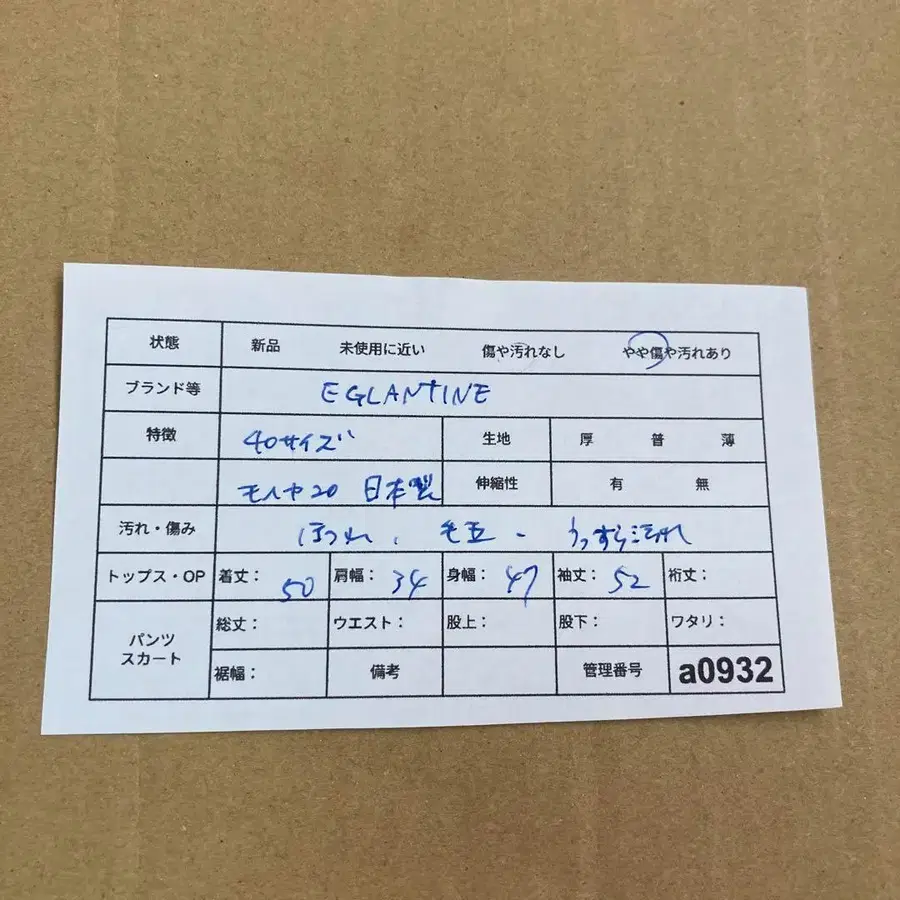 状態 新品 未使用に近い 傷や汚れなし やや傷や汚れあり
ブランド等 EGLANTINE
特徴 40サイズ 生地 厚 普 薄
モヘヤ20 日本製 伸縮性 有 無
汚れ・傷み ほつれ、毛玉、うっすら汚れ
トップス・OP 着丈: 50 肩幅: 34 身幅: 47 袖丈: 52 裄丈:
パンツ スカート 総丈: ウエスト: 股上: 股下: ワタリ:
裾幅: 備考 管理番号 a0932